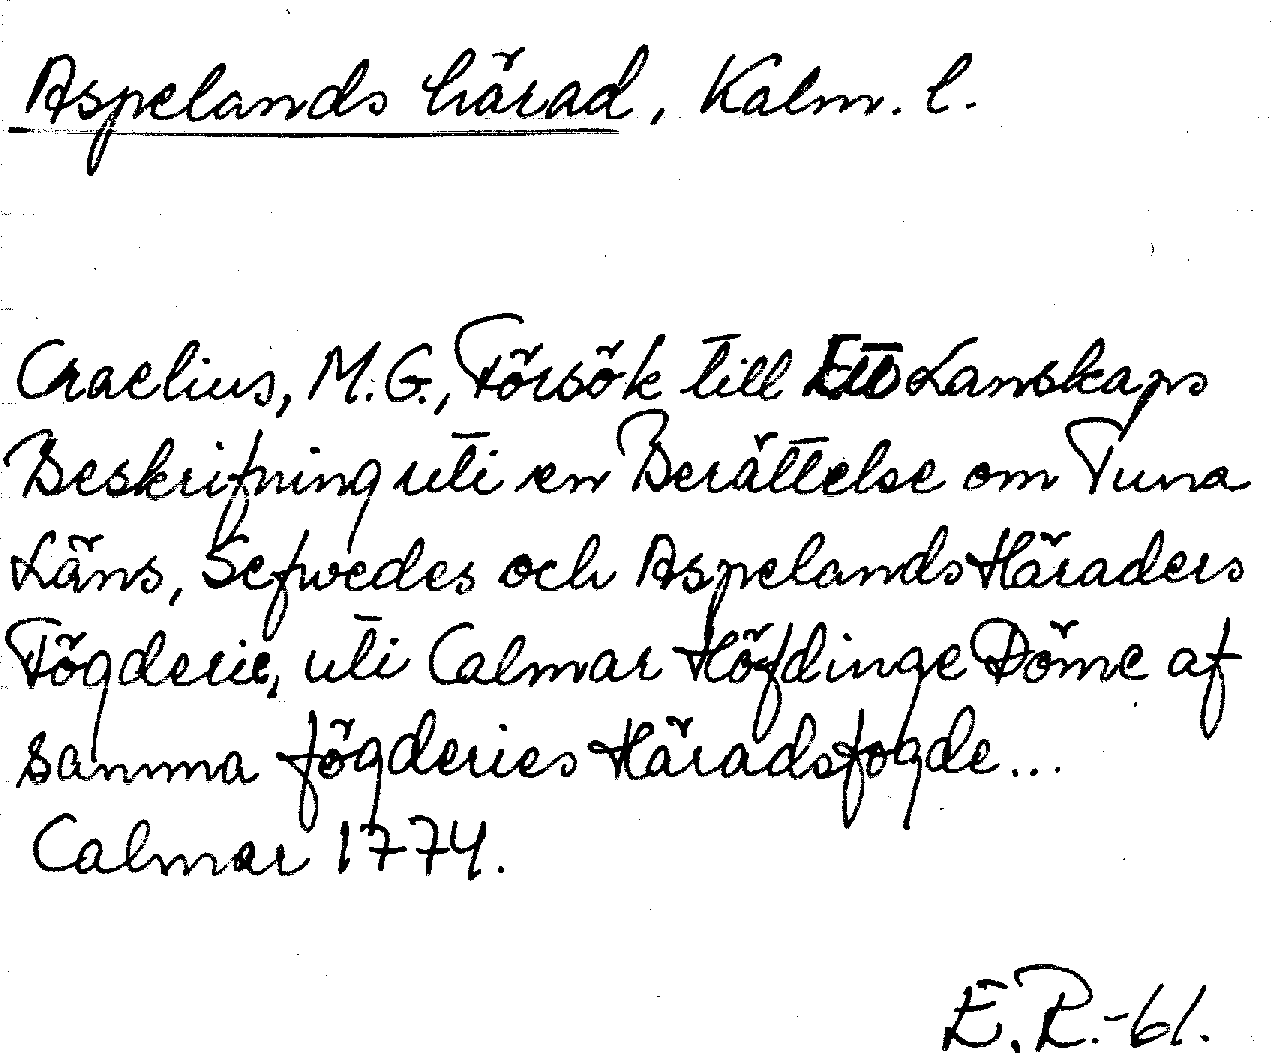 Aspelands härad, Kalm. l.
Craelius, M.G., Försök till Ett Lanskaps
Beskrifning uti en Berättelse om Tuna
Läns, Sefwedes och Aspelands Häraders
Fögderie, uti Calmar Höfdinge Döme af
samma fögderies Häradsfogde...
Calmar 1774.
E.R.-61.